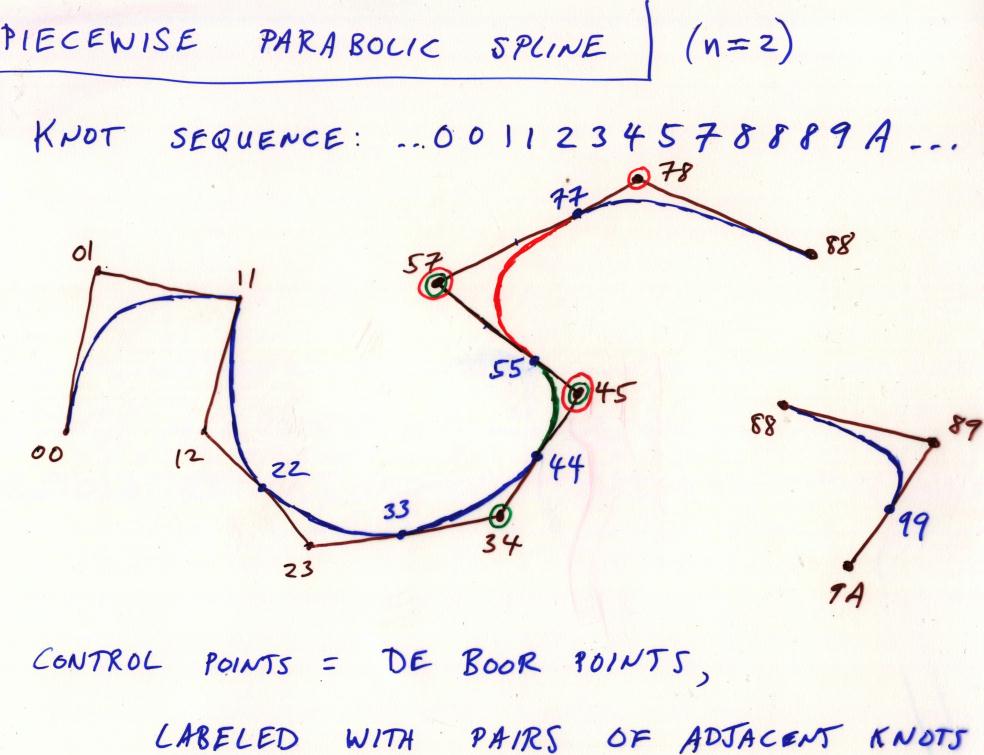 PIECEWISE PARABOLIC SPLINE (n=2)
KNOT SEQUENCE: ...0 0 1 1 2 3 4 5 7 8 8 8 9 A ...
78
77
88
01
57
11
55
45
00
12
22
44
33
23
34
88
89
99
9A
CONTROL POINTS = DE BOOR POINTS,
LABELED WITH PAIRS OF ADJACENT KNOTS